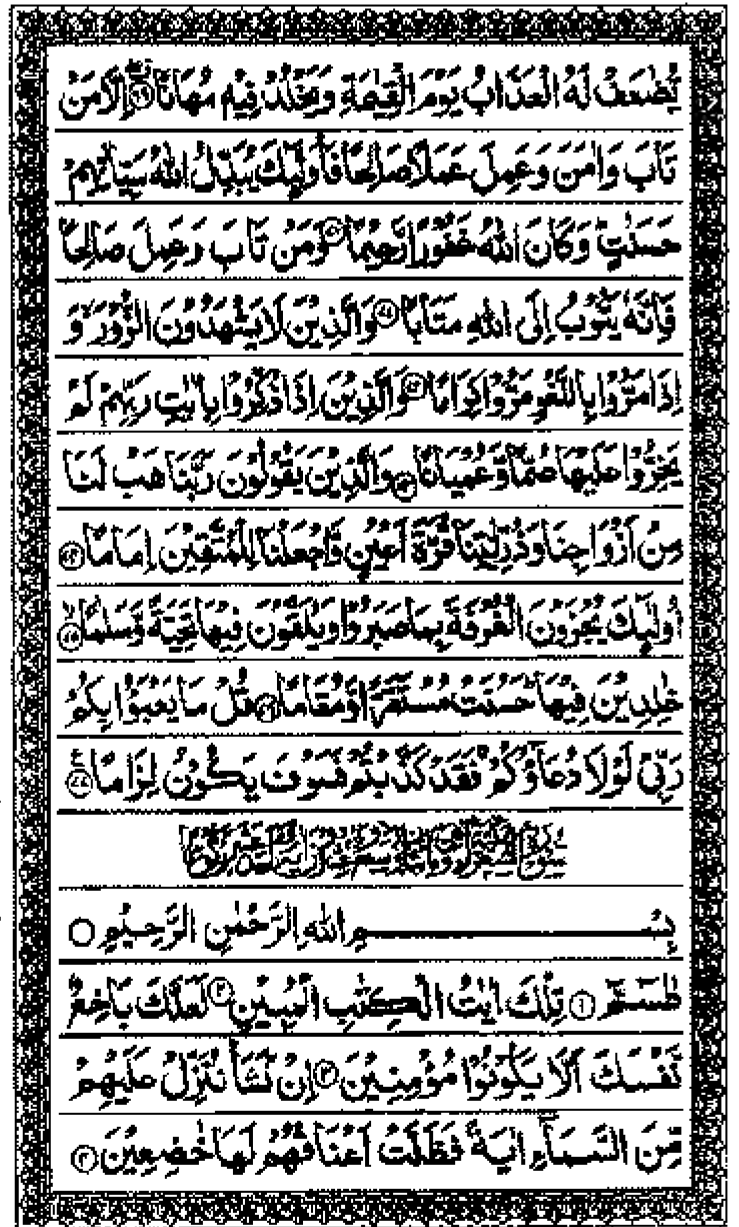 يُّضٰعَفْ لَهُ الْعَذَابُ يَوْمَ الْقِيٰمَةِ وَيَخْلُدْ فِيْهٖ مُهَانًا ۞ اِلَّا مَنْ
تَابَ وَاٰمَنَ وَعَمِلَ عَمَلًا صَالِحًا فَاُولٰٓئِكَ يُبَدِّلُ اللّٰهُ سَيِّاٰتِهِمْ
حَسَنٰتٍ ؕ وَكَانَ اللّٰهُ غَفُوْرًا رَّحِيْمًا ۞ وَمَنْ تَابَ وَعَمِلَ صَالِحًا
فَاِنَّهٗ يَتُوْبُ اِلَى اللّٰهِ مَتَابًا ۞ وَالَّذِيْنَ لَا يَشْهَدُوْنَ الزُّوْرَ ۙ وَ
اِذَا مَرُّوْا بِاللَّغْوِ مَرُّوْا كِرَامًا ۞ وَالَّذِيْنَ اِذَا ذُكِّرُوْا بِاٰيٰتِ رَبِّهِمْ لَمْ
يَخِرُّوْا عَلَيْهَا صُمًّا وَّعُمْيَانًا ۞ وَالَّذِيْنَ يَقُوْلُوْنَ رَبَّنَا هَبْ لَنَا
مِنْ اَزْوَاجِنَا وَذُرِّيّٰتِنَا قُرَّةَ اَعْيُنٍ وَّاجْعَلْنَا لِلْمُتَّقِيْنَ اِمَامًا ۞
اُولٰٓئِكَ يُجْزَوْنَ الْغُرْفَةَ بِمَا صَبَرُوْا وَيُلَقَّوْنَ فِيْهَا تَحِيَّةً وَّسَلٰمًا ۞
خٰلِدِيْنَ فِيْهَا ؕ حَسُنَتْ مُسْتَقَرًّا وَّمُقَامًا ۞ قُلْ مَا يَعْبَؤُا بِكُمْ
رَبِّيْ لَوْلَا دُعَآؤُكُمْ ۚ فَقَدْ كَذَّبْتُمْ فَسَوْفَ يَكُوْنُ لِزَامًا ۞
بِسْمِ اللّٰهِ الرَّحْمٰنِ الرَّحِيْمِ
طٰسٓمّٓ ۞ تِلْكَ اٰيٰتُ الْكِتٰبِ الْمُبِيْنِ ۞ لَعَلَّكَ بَاخِعٌ
نَّفْسَكَ اَلَّا يَكُوْنُوْا مُؤْمِنِيْنَ ۞ اِنْ نَّشَاْ نُنَزِّلْ عَلَيْهِمْ
مِّنَ السَّمَآءِ اٰيَةً فَظَلَّتْ اَعْنَاقُهُمْ لَهَا خٰضِعِيْنَ ۞